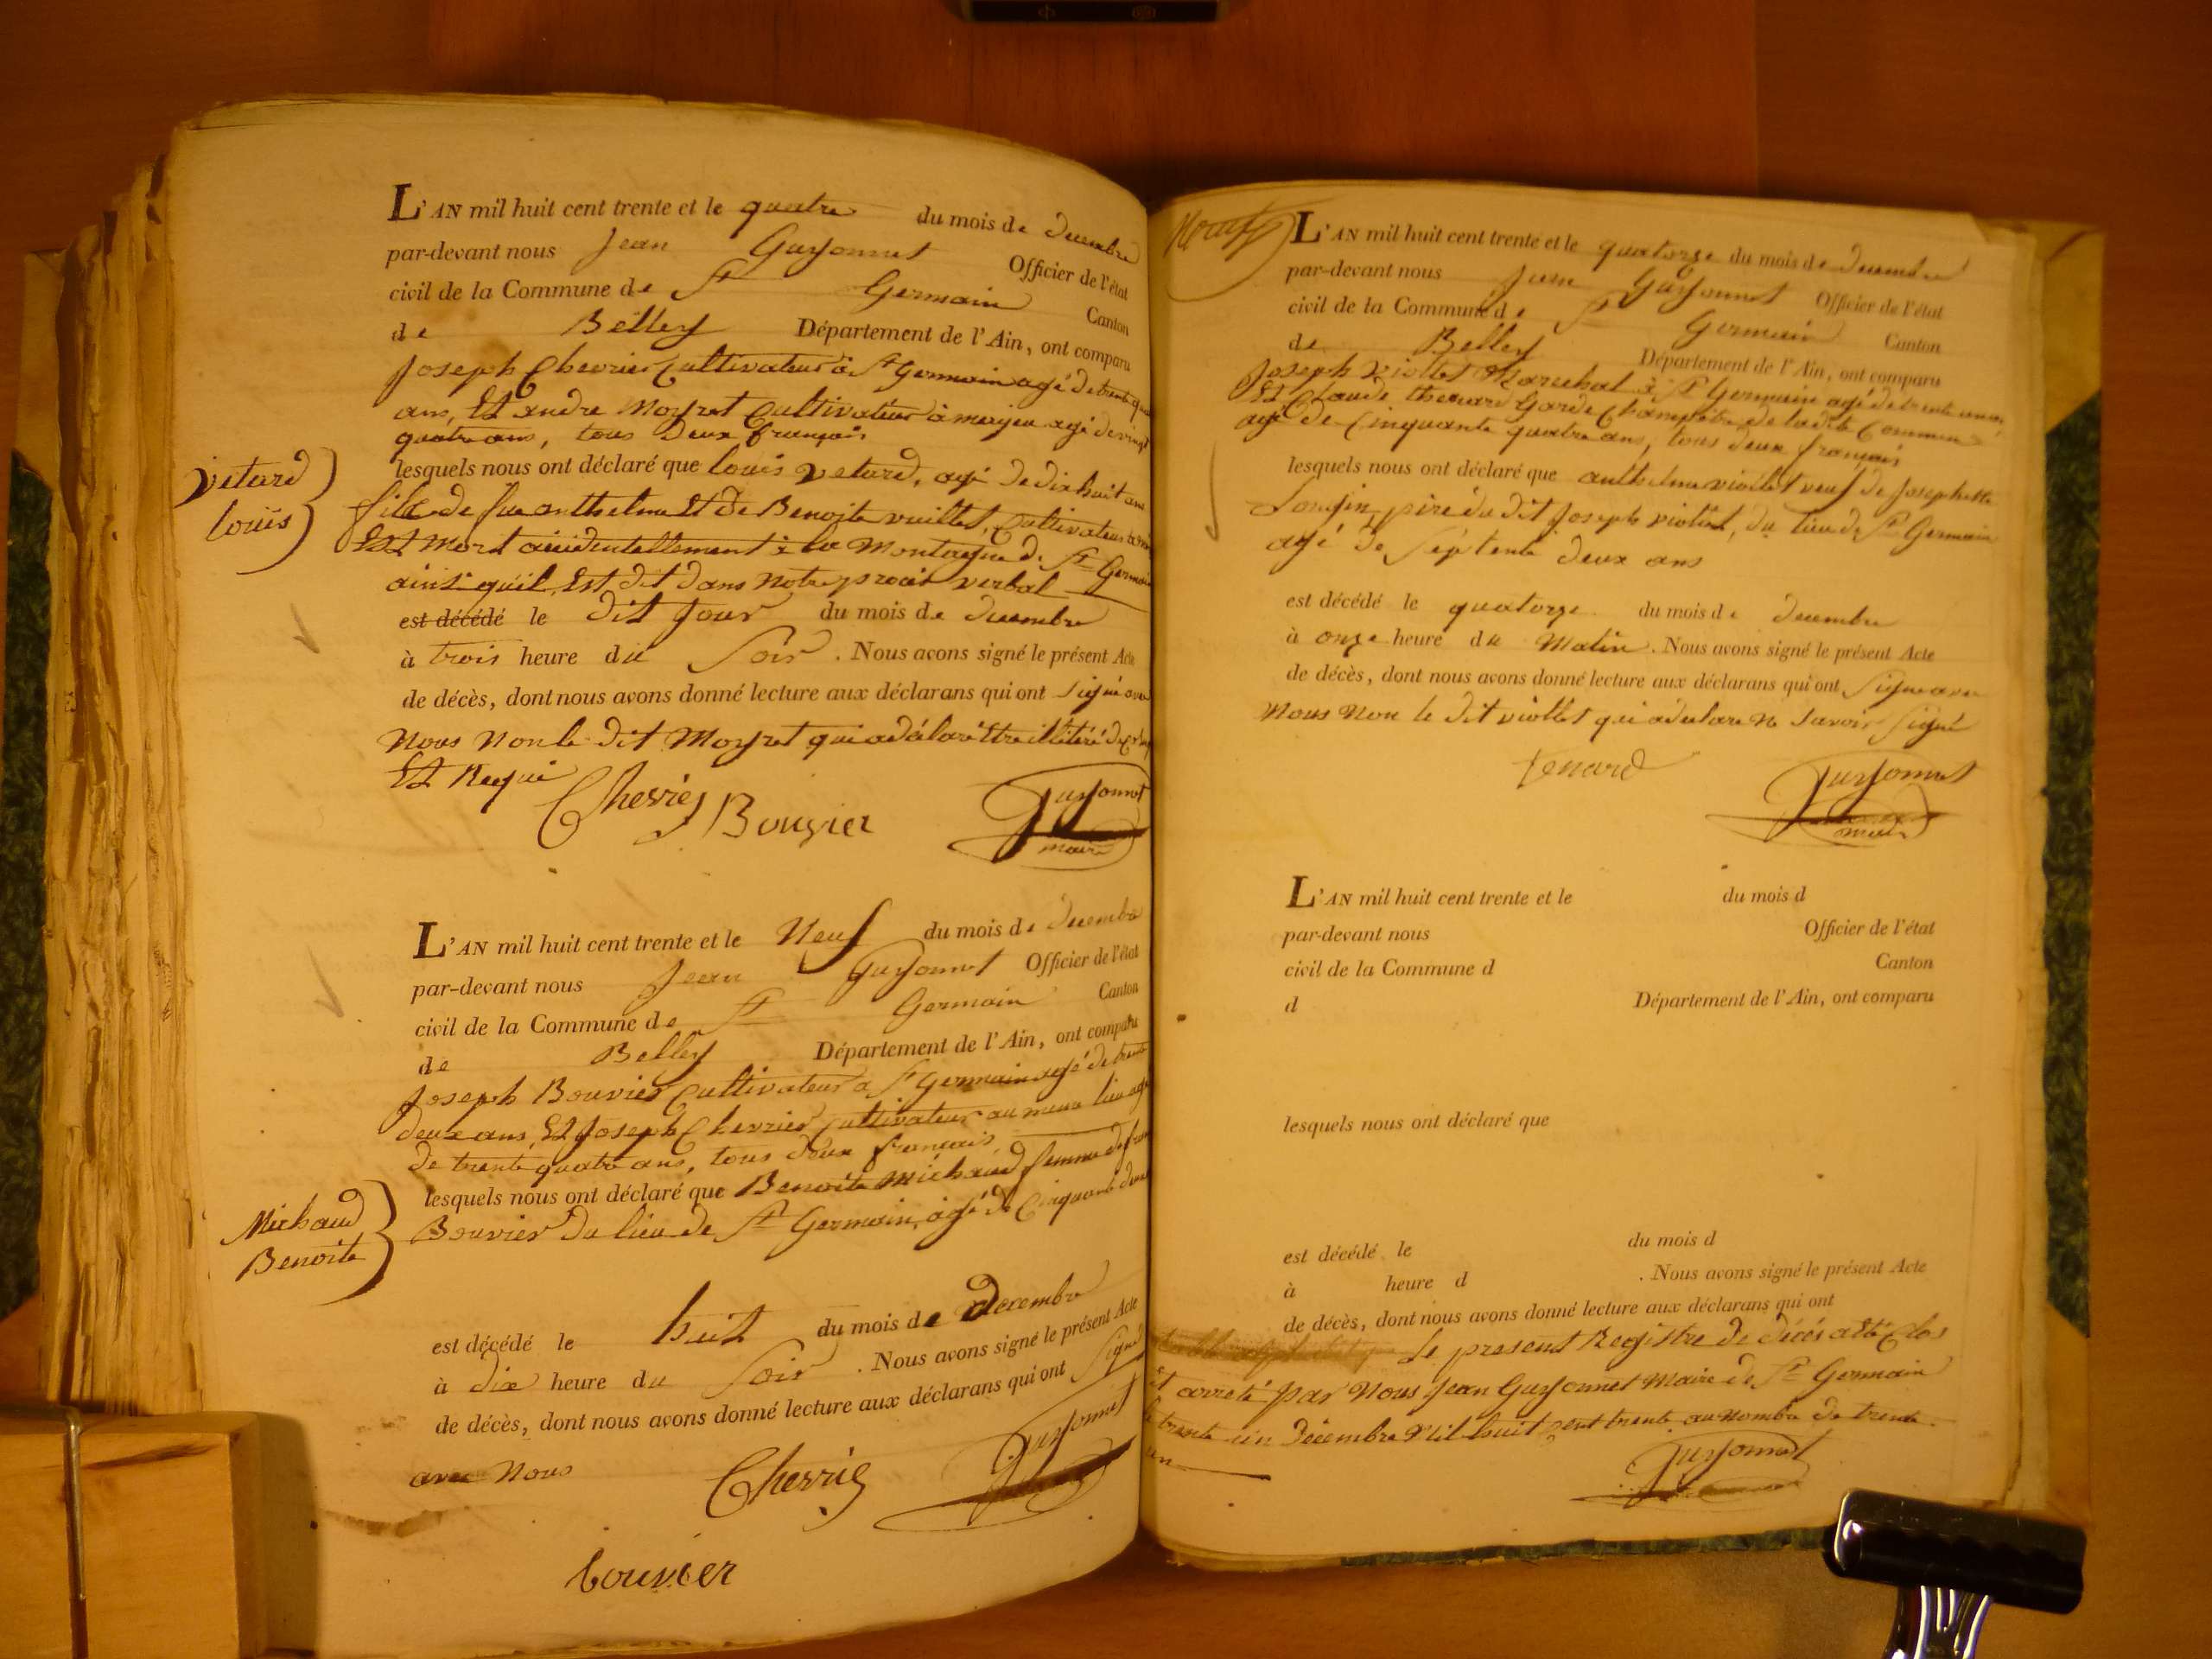 L'AN mil huit cent trente et le quatre du mois de decembre
par-devant nous Jean Guyonnet Officier de l'état
civil de la Commune de St Germain Canton
de Belley Département de l'Ain, ont comparu
Joseph Chevrier Cultivateur à St Germain agé de trente
ans, Et andre Moyret Cultivateur à agé de vingt
quatre ans, tous Deux français
Vetard
louis
lesquels nous ont déclaré que louis Vetard, agé De dix huit ans
fils de feu anthelme Et De Benoite vuillet, Cultivateur
Est Mort accidentellement à la Montagne de St Germain
ainsi quil Est dit Dans Notre procés verbal
est décédé le Dit Jour du mois de decembre
à trois heure du Soir . Nous avons signé le présent Acte
de décès, dont nous avons donné lecture aux déclarans qui ont signé avec
Nous Non le Dit Moyret qui a déclaré être illitéré De ce
Et Requi
Chevrier Bouvier Guyonnet
maire
L'AN mil huit cent trente et le Neuf du mois de decembre
par-devant nous Jean Guyonnet Officier de l'état
civil de la Commune de St Germain Canton
de Belley Département de l'Ain, ont comparu
Joseph Bouvier Cultivateur a St Germain agé de trente
deux ans Et Joseph Chevrier Cultivateur au meme lieu agé
De trente quatre ans, tous deux français
Michaud
Benoite
lesquels nous ont déclaré que Benoite Michaud femme de
Bouvier Du lieu de St Germain, agé de Cinquante deux
est décédé le huit du mois de Decembre
à dix heure du Soir . Nous avons signé le présent Acte
de décès, dont nous avons donné lecture aux déclarans qui ont Signé
avec Nous
Chevrier Guyonnet
bouvier
L'AN mil huit cent trente et le quatorze du mois de decembre
par-devant nous Jean Guyonnet Officier de l'état
civil de la Commune de St Germain Canton
de Belley Département de l'Ain, ont comparu
Joseph Viollet Marechal à St Germain agé de trente un ans
Et Claude thenard Garde Champêtre de ladite Commune
agé de Cinquante quatre ans, tous deux français
lesquels nous ont déclaré que anthelme viollet veuf de Josephette
Longin, pere du dit Joseph viollet, du lieu de St Germain
agé de Septente deux ans
est décédé le quatorze du mois de decembre
à onze heure du Matin . Nous avons signé le présent Acte
de décès, dont nous avons donné lecture aux déclarans qui ont Signe avec
Nous Non le dit viollet qui a declare ne Savoir Signé
tenard Guyonnet
maire
L'AN mil huit cent trente et le du mois d
par-devant nous Officier de l'état
civil de la Commune d Canton
d Département de l'Ain, ont comparu
lesquels nous ont déclaré que
est décédé le du mois d
à heure d . Nous avons signé le présent Acte
de décès, dont nous avons donné lecture aux déclarans qui ont
Le present Registre de décés a été Clos
et arreté par Nous Jean Guyonnet Maire de St Germain
le trente un Décembre Mil huit cent trente au nombre de trente
un
Guyonnet